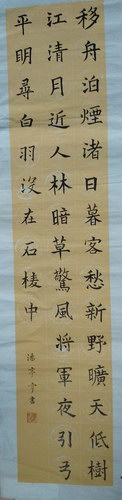 移舟泊煙渚日暮客愁新野曠天低樹
江清月近人林暗草驚風將軍夜引弓
平明尋白羽沒在石棱中